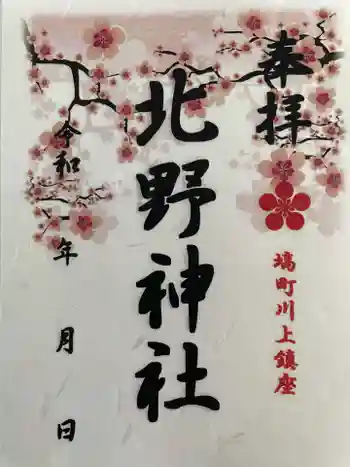 奉拝
塙町川上鎮座
北野神社
令和一年 月 日